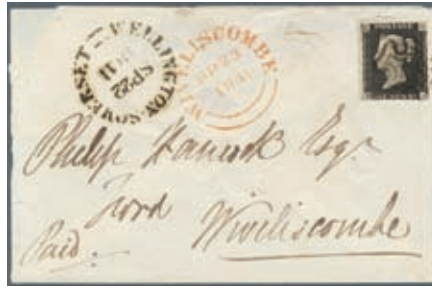 WELLINGTON-SOMERSET
SP22
WIVELISCOMBE
SP23
1841
POSTAGE
Philip Hancock Esqr.
Ford
Wiveliscombe
Paid.